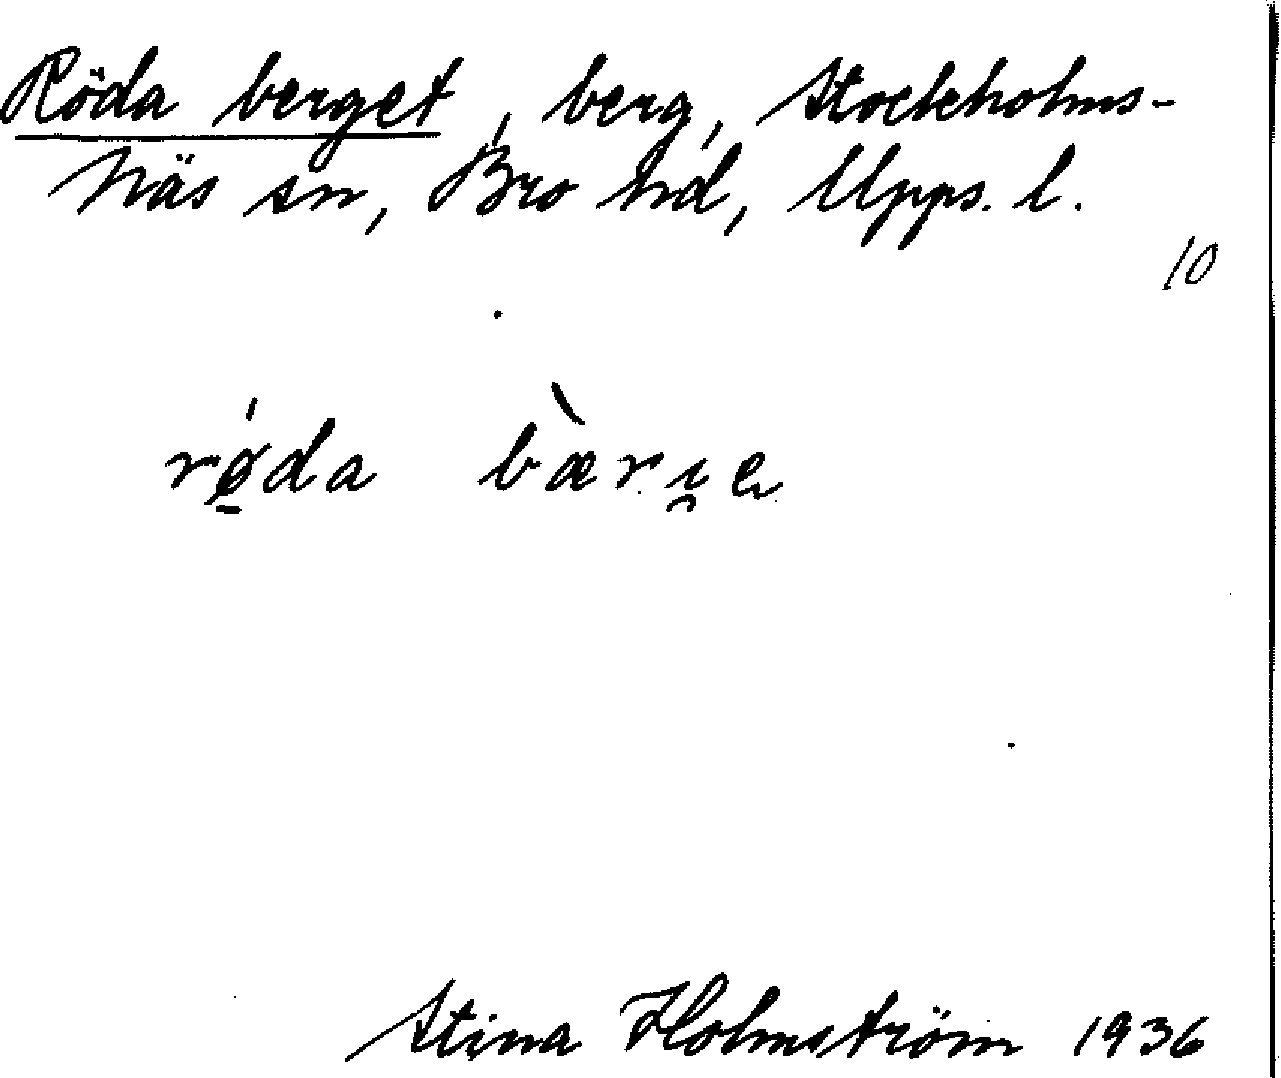 Röda berget, berg, Stockholms-
Näs sn, Bro hd, Upps. l.
10
rǿ̱da bæ̀ri̯e
Stina Holmström 1936